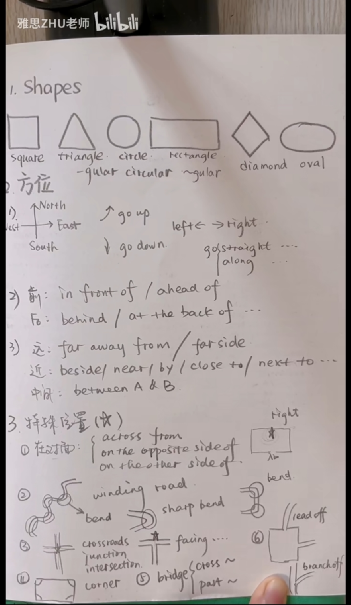 雅思ZHU老师 bilibili
1. Shapes
square triangle circle rectangle diamond oval
-gular circular ~gular
2. 方位
1) North
East
South
go up
go down
left ← → right
go straight ...
along
2) 前: in front of / ahead of
后: behind / at the back of ...
3) 远: far away from / far side
近: beside / near / by / close to / next to ...
中间: between A & B
3. 特殊位置 (☆)
right
① 在对面: across from
on the opposite side of
on the other side of
② winding road
bend
sharp bend
bend
③ crossroads
junction
intersection
facing ...
④ corner
⑤ bridge cross ~
past ~
⑥ lead off
branch off